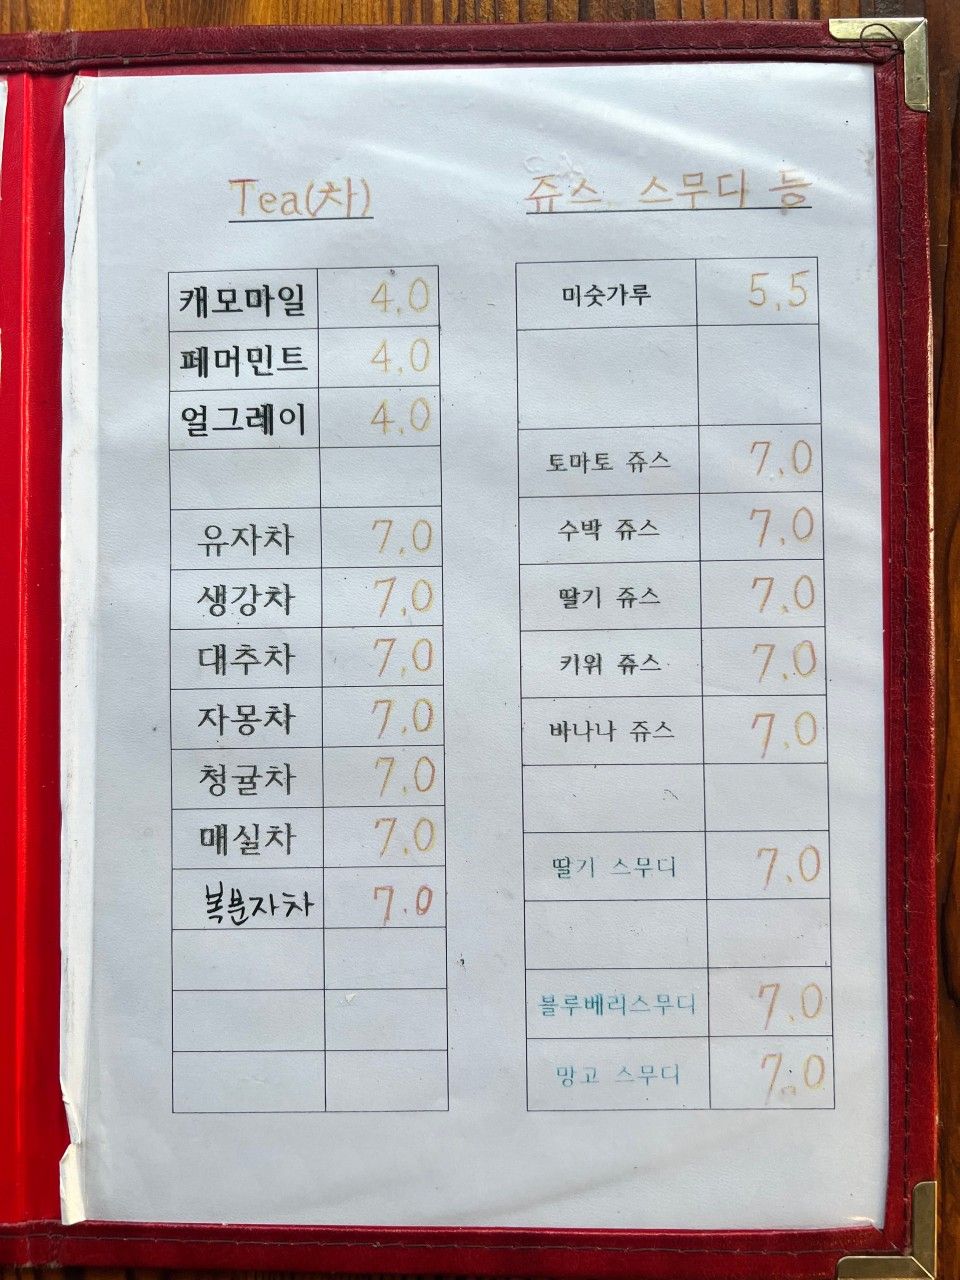 Tea(차)
캐모마일 4,0
페머민트 4,0
얼그레이 4,0
유자차 7,0
생강차 7,0
대추차 7,0
자몽차 7,0
청귤차 7,0
매실차 7,0
복분자차 7.0
쥬스 스무디 등
미숫가루 5,5
토마토 쥬스 7,0
수박 쥬스 7,0
딸기 쥬스 7,0
키위 쥬스 7,0
바나나 쥬스 7,0
딸기 스무디 7,0
블루베리스무디 7,0
망고 스무디 7,0